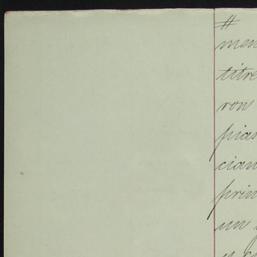 #
men
titre
ron
pian
cian
prin
un